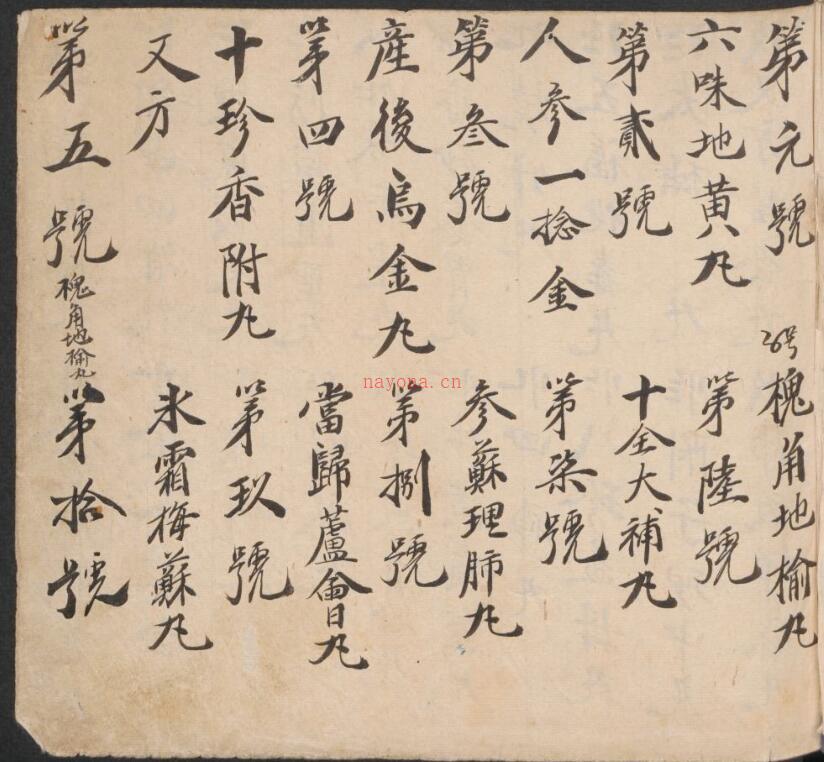 第元號
六味地黃丸
第貳號
人參一捻金
第叁號
產後烏金丸
第四號
十珍香附丸
又方
第五號
槐角地榆丸
号
槐角地榆丸
第陸號
十全大補丸
第柒號
參蘇理肺丸
第捌號
當歸蘆會丸
第玖號
氷霜梅蘇丸
第拾號
nayona.cn